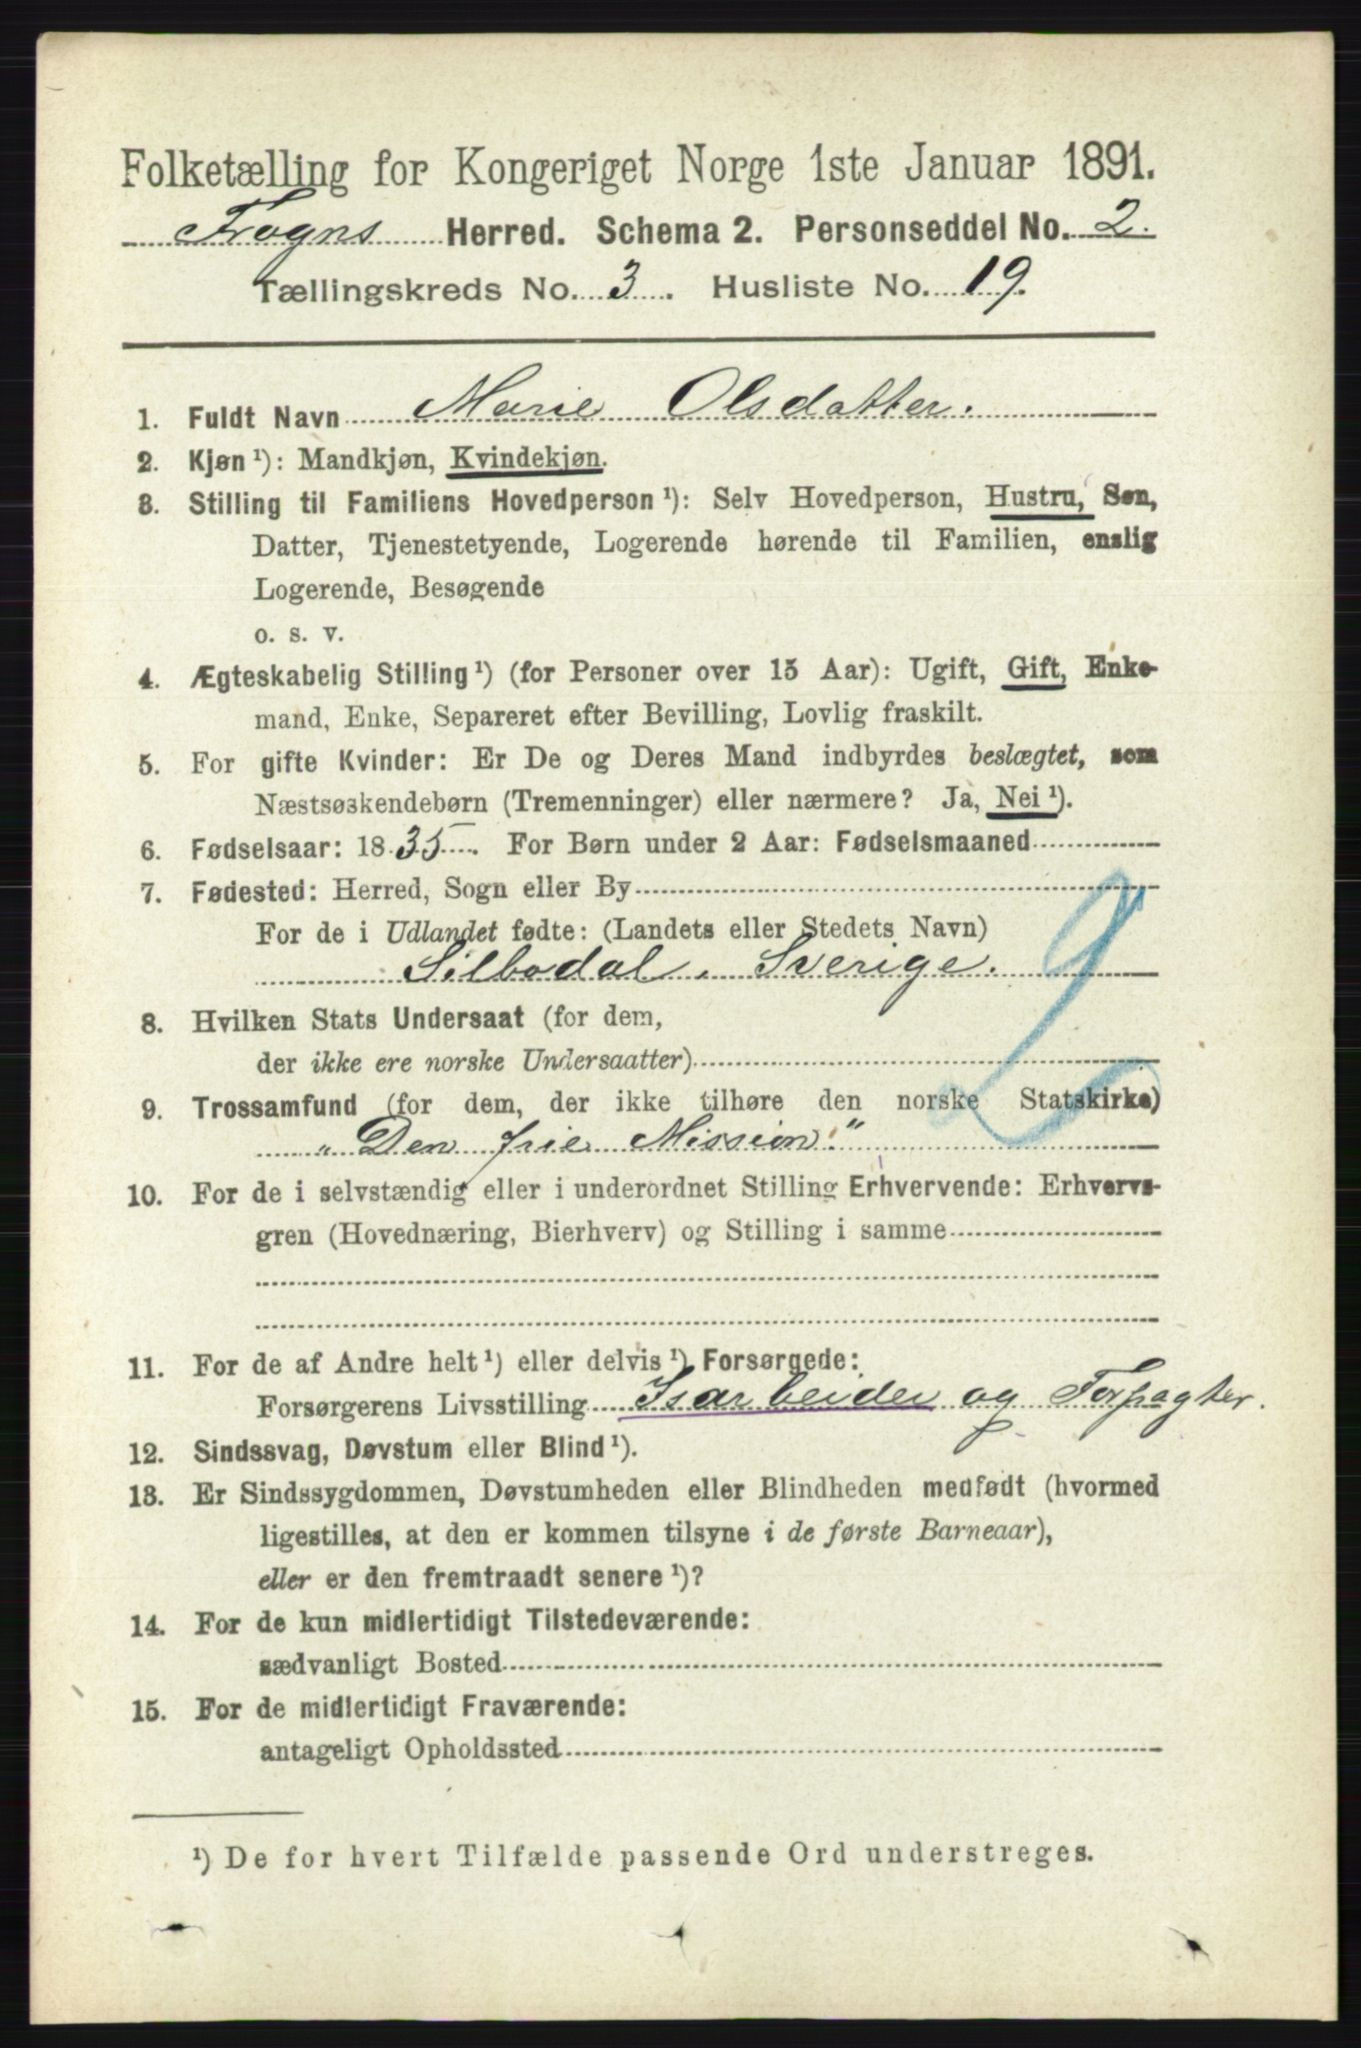 Folketælling for Kongeriget Norge 1ste Januar 1891.
Frogns Herred. Schema 2. Personseddel No. 2.
Tællingskreds No. 3. Husliste No. 19.
1. Fuldt Navn Marie Olsdatter.
2. Kjøn ¹): Mandkjøn, Kvindekjøn.
3. Stilling til Familiens Hovedperson ¹): Selv Hovedperson, Hustru, Søn,
Datter, Tjenestetyende, Logerende hørende til Familien, enslig
Logerende, Besøgende
o. s. v.
4. Ægteskabelig Stilling ¹) (for Personer over 15 Aar): Ugift, Gift, Enke-
mand, Enke, Separeret efter Bevilling, Lovlig fraskilt.
5. For gifte Kvinder: Er De og Deres Mand indbyrdes beslægtet, som
Næstsøskendebørn (Tremenninger) eller nærmere? Ja, Nei ¹).
6. Fødselsaar: 1835. For Børn under 2 Aar: Fødselsmaaned
7. Fødested: Herred, Sogn eller By
For de i Udlandet fødte: (Landets eller Stedets Navn)
Silbodal. Sverige.
2
8. Hvilken Stats Undersaat (for dem,
der ikke ere norske Undersaatter)
9. Trossamfund (for dem, der ikke tilhøre den norske Statskirke)
„Den frie Mission."
10. For de i selvstændig eller i underordnet Stilling Erhvervende: Erhvervs-
gren (Hovednæring, Bierhverv) og Stilling i samme
11. For de af Andre helt ¹) eller delvis ¹) Forsørgede:
Forsørgerens Livsstilling Isarbeider og Forpagter.
12. Sindssvag, Døvstum eller Blind ¹).
13. Er Sindssygdommen, Døvstumheden eller Blindheden medfødt (hvormed
ligestilles, at den er kommen tilsyne i de første Barneaar),
eller er den fremtraadt senere ¹)?
14. For de kun midlertidigt Tilstedeværende:
sædvanligt Bosted
15. For de midlertidigt Fraværende:
antageligt Opholdssted
¹) De for hvert Tilfælde passende Ord understreges.